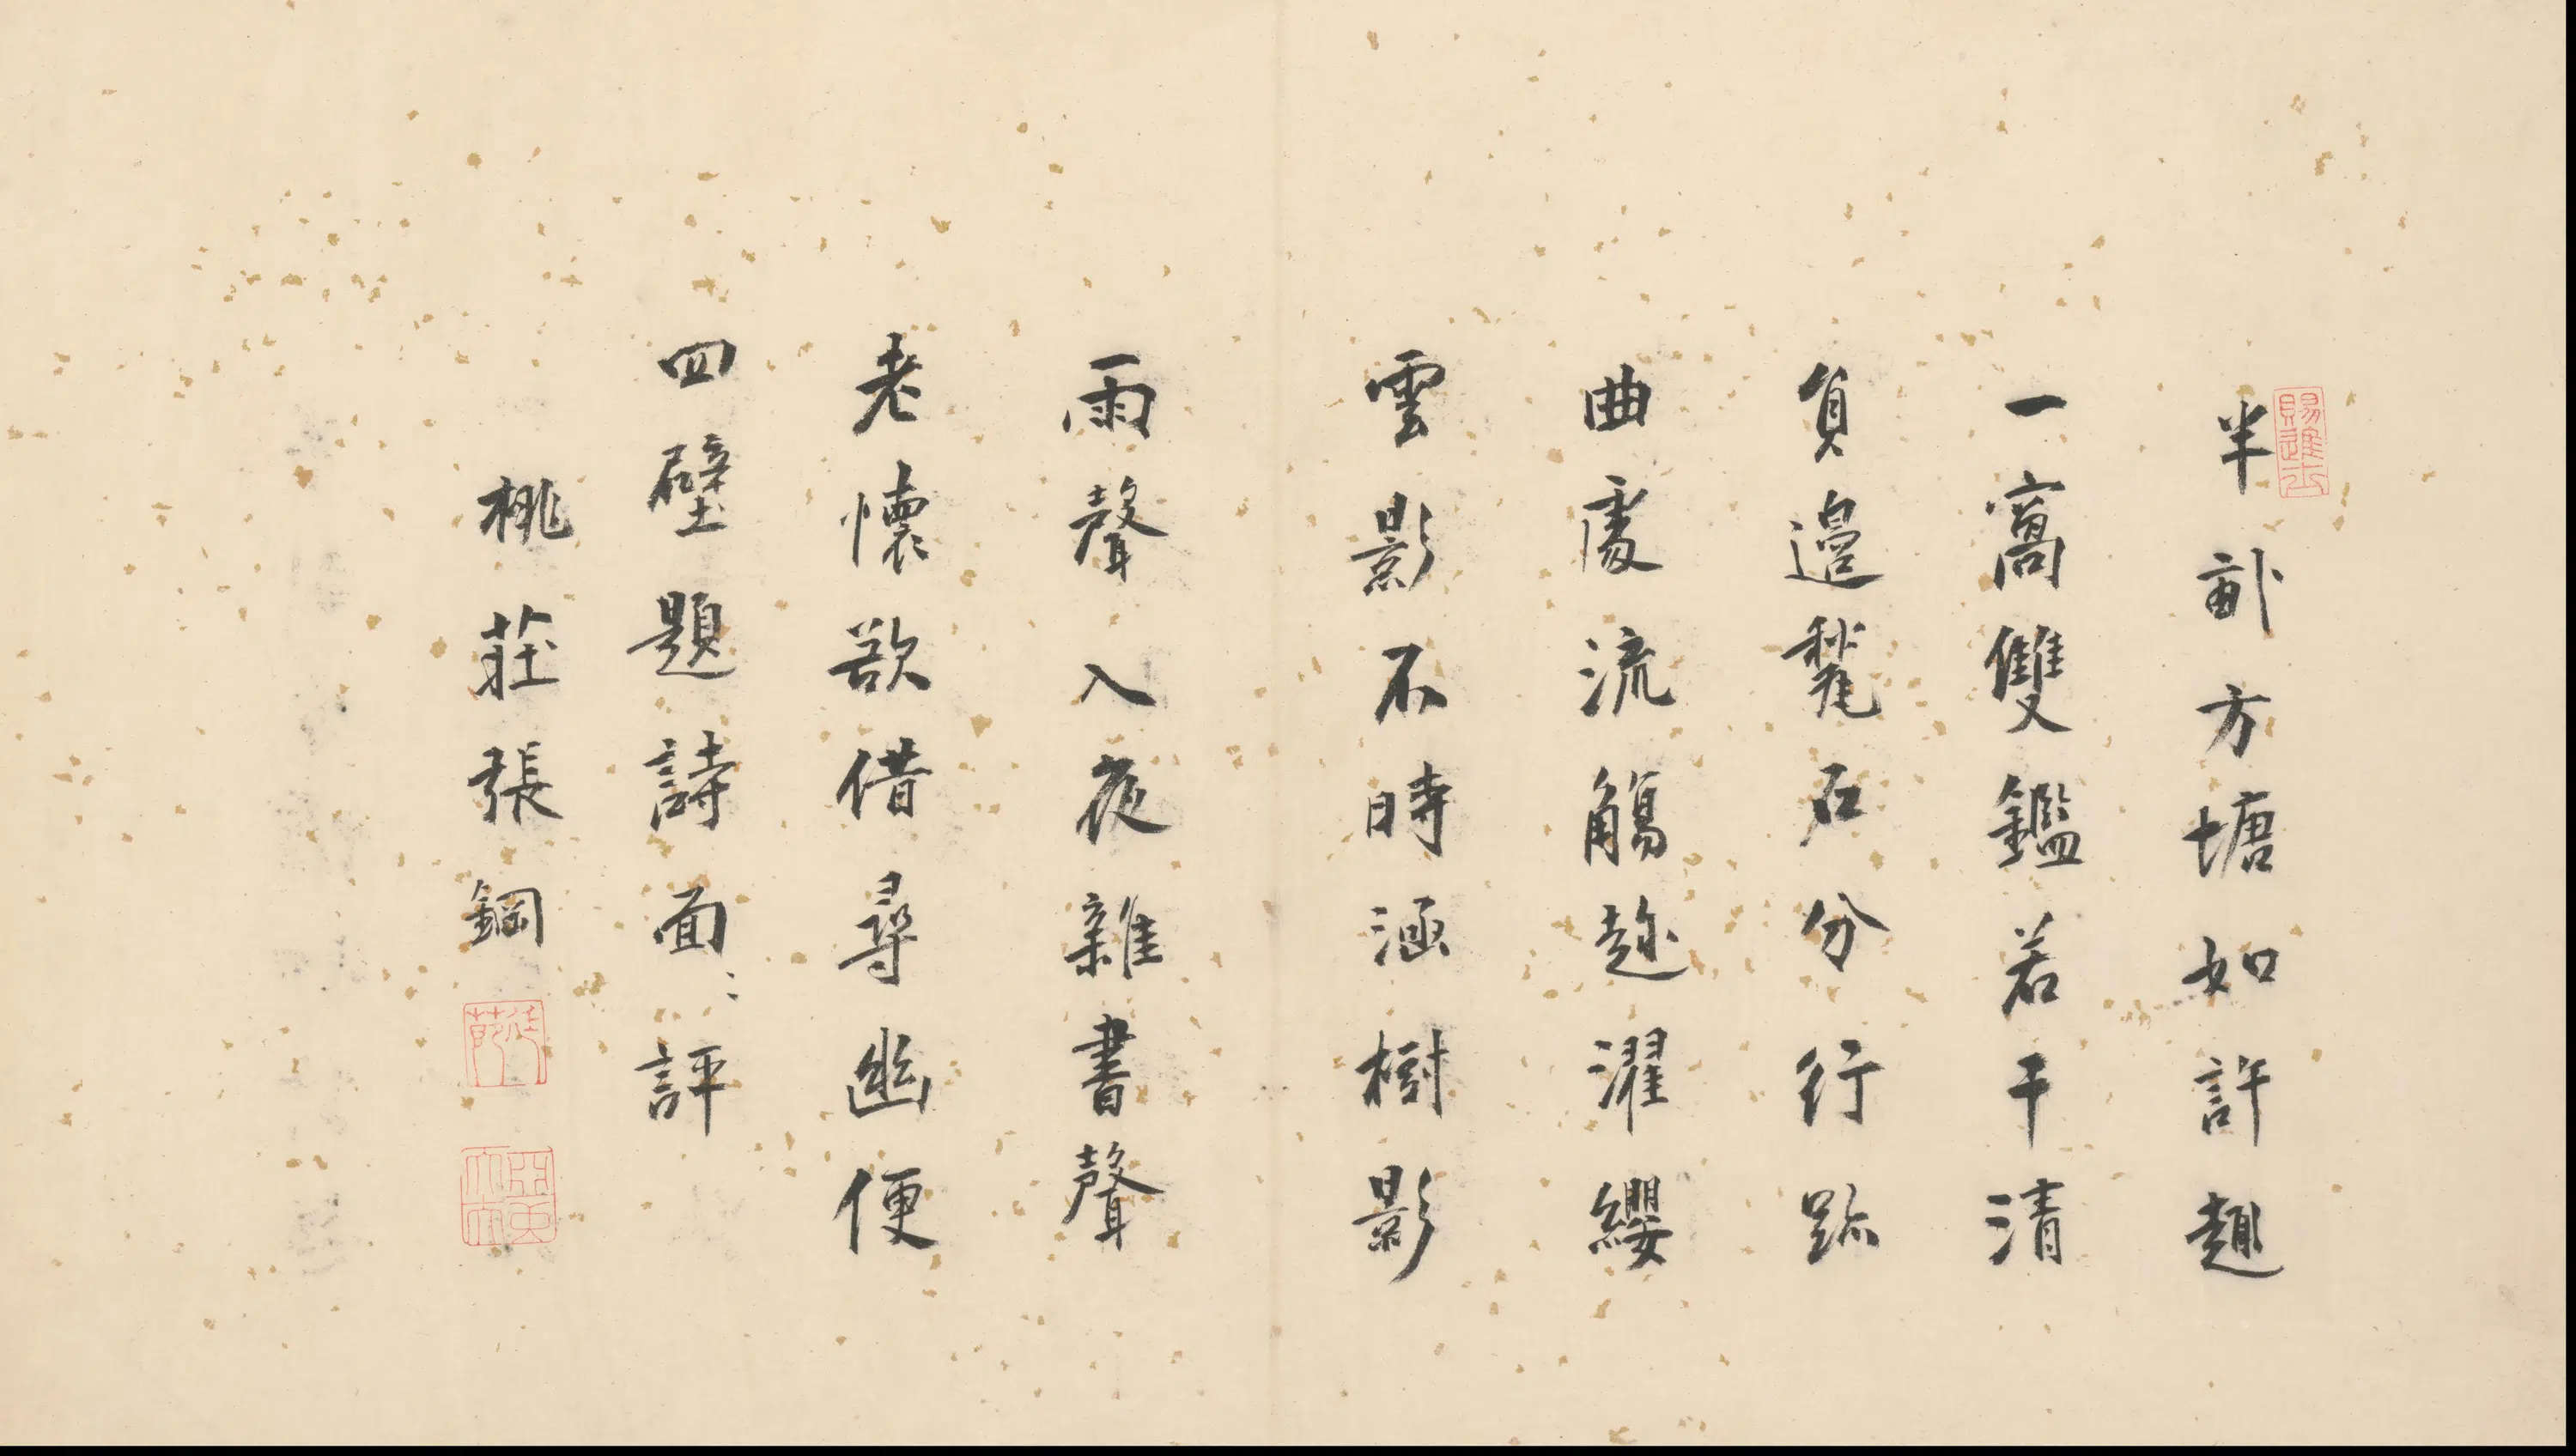 半畝方塘如許趣
一窩雙鑑若干清
負邊甃石分行跡
曲處流觴趂濯纓
雲影不時涵樹影
雨聲入夜雜書聲
老懷欲借尋幽便
四壁題詩面〻評
桃莊張鋼